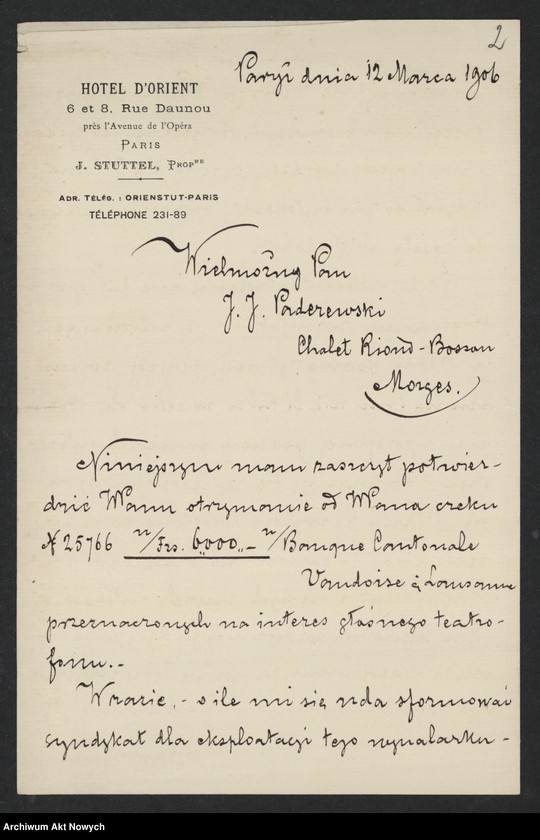 2
Paryż dnia 12 Marca 1906
HOTEL D'ORIENT
6 et 8, Rue Daunou
près l'Avenue de l'Opéra
PARIS
J. STUTTEL, PROPRE
ADR. TÉLÉG. : ORIENSTUT-PARIS
TÉLÉPHONE 231-89
Wielmożny Pan
J. J. Paderewski
Chalet Riond-Bosson
Morges.
Niniejszym mam zaszczyt potwier-
dzić Wamu otrzymanie od WPana czeku
N 25766 n/Frs. 6000.- n/Banque Cantonale
Vaudoise à Lausanne
przeznaczonych na interes głośnego teatro-
fonu.-
W razie,- o ile mi się uda sformować
syndykat dla eksploatacji tego wynalazku-
Archiwum Akt Nowych